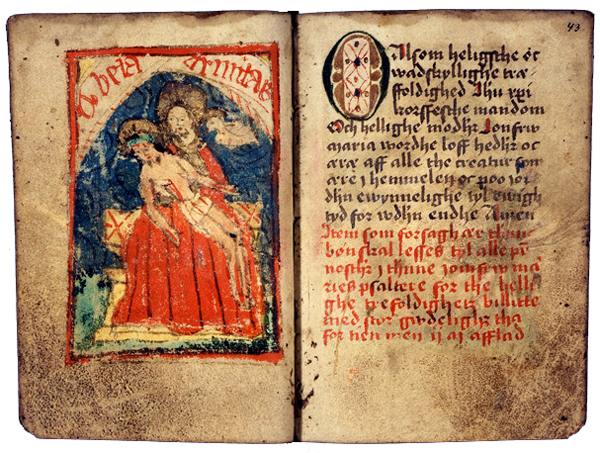 O beata trinitas
43
Alsom heligsthe oc
wadskyllighe træ
foldighed Ihu xpi
korssfesthe mandom
Och hellighe modhr Jomfrw
maria wordhe loff hedhr oc
æræ aff alle the creatur som
ære i hemmelen oc poo jor
dhn ewynnelighe tyl ewigh
tyd for wdhn endhe Amen
Item som forsagh ær thnne
bøn skal lesses tyl alle
i thnne jomfrw ma
ries psaltere for the helli
ghe trefoldighetz billitte
med stor gudelighz tha
for tien men ij ar afflad